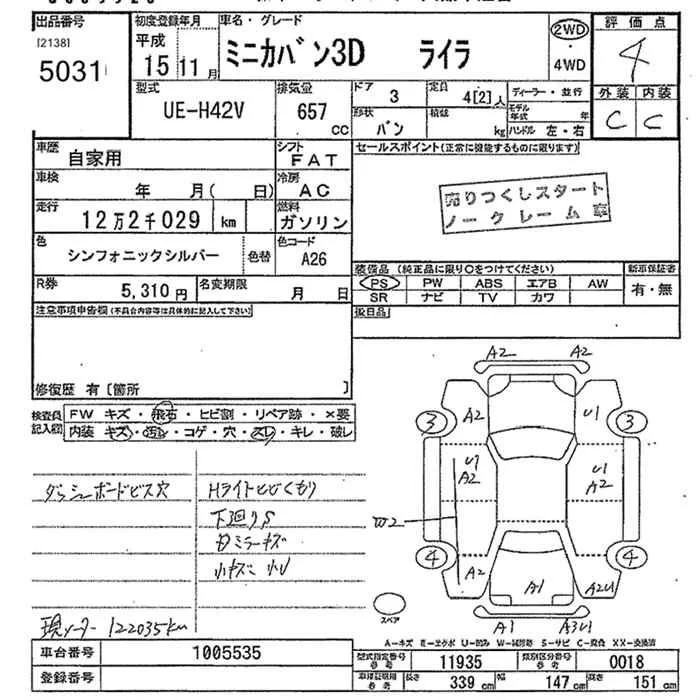 出品番号
[2138]
5031
初度登録年月
平成
15年11月
車名・グレード
ミニカバン3D ライラ
2WD
・4WD
評価点
4
外装 内装
C C
型式
UE-H42V
排気量
657 CC
ドア
3
形状
バン
定員
4[2]人
積載
kg
ディーラー・並行
モデル年式 年
ハンドル 左・右
車歴
自家用
シフト
FAT
車検
年 月( 日)
冷房
AC
走行
12万2千029 km
燃料
ガソリン
色
シンフォニックシルバー
色替
色コード
A26
R券
5,310円
名変期限
月 日
セールスポイント(正常に機能するものに限ります)
売りつくしスタート
ノークレーム車
装備品 (純正品に限り○をつけてください)
新車保証書
PS PW ABS エアB AW
SR ナビ TV カワ
有・無
後日品
注意事項申告欄(不具合内容等は具体的に記入して下さい)
修復歴 有〔箇所 〕
検査員記入欄
FW キズ・飛石・ヒビ割・リペア跡・×要
内装 キズ・汚レ・コゲ・穴・スレ・キレ・破レ
ダッシュボードビス穴
Hライトヒビくもり
下廻りS
ミラーキズ
小キズ 小U
現メーター 122035km
A2 A2
3 A2 U1 3
U1 A2 U1 A2
W2
4 A2 A1 A2U 4
A1 A3U1
スペア
A-キズ ミ-エクボ U-凹み W-補修跡 S-サビ C-腐食 XX-交換済
車台番号
1005535
登録番号
型式指定番号 参考
11935
類別区分番号 参考
0018
車検証数値 参考
長さ 339 cm
幅 147 cm
高さ 151 cm